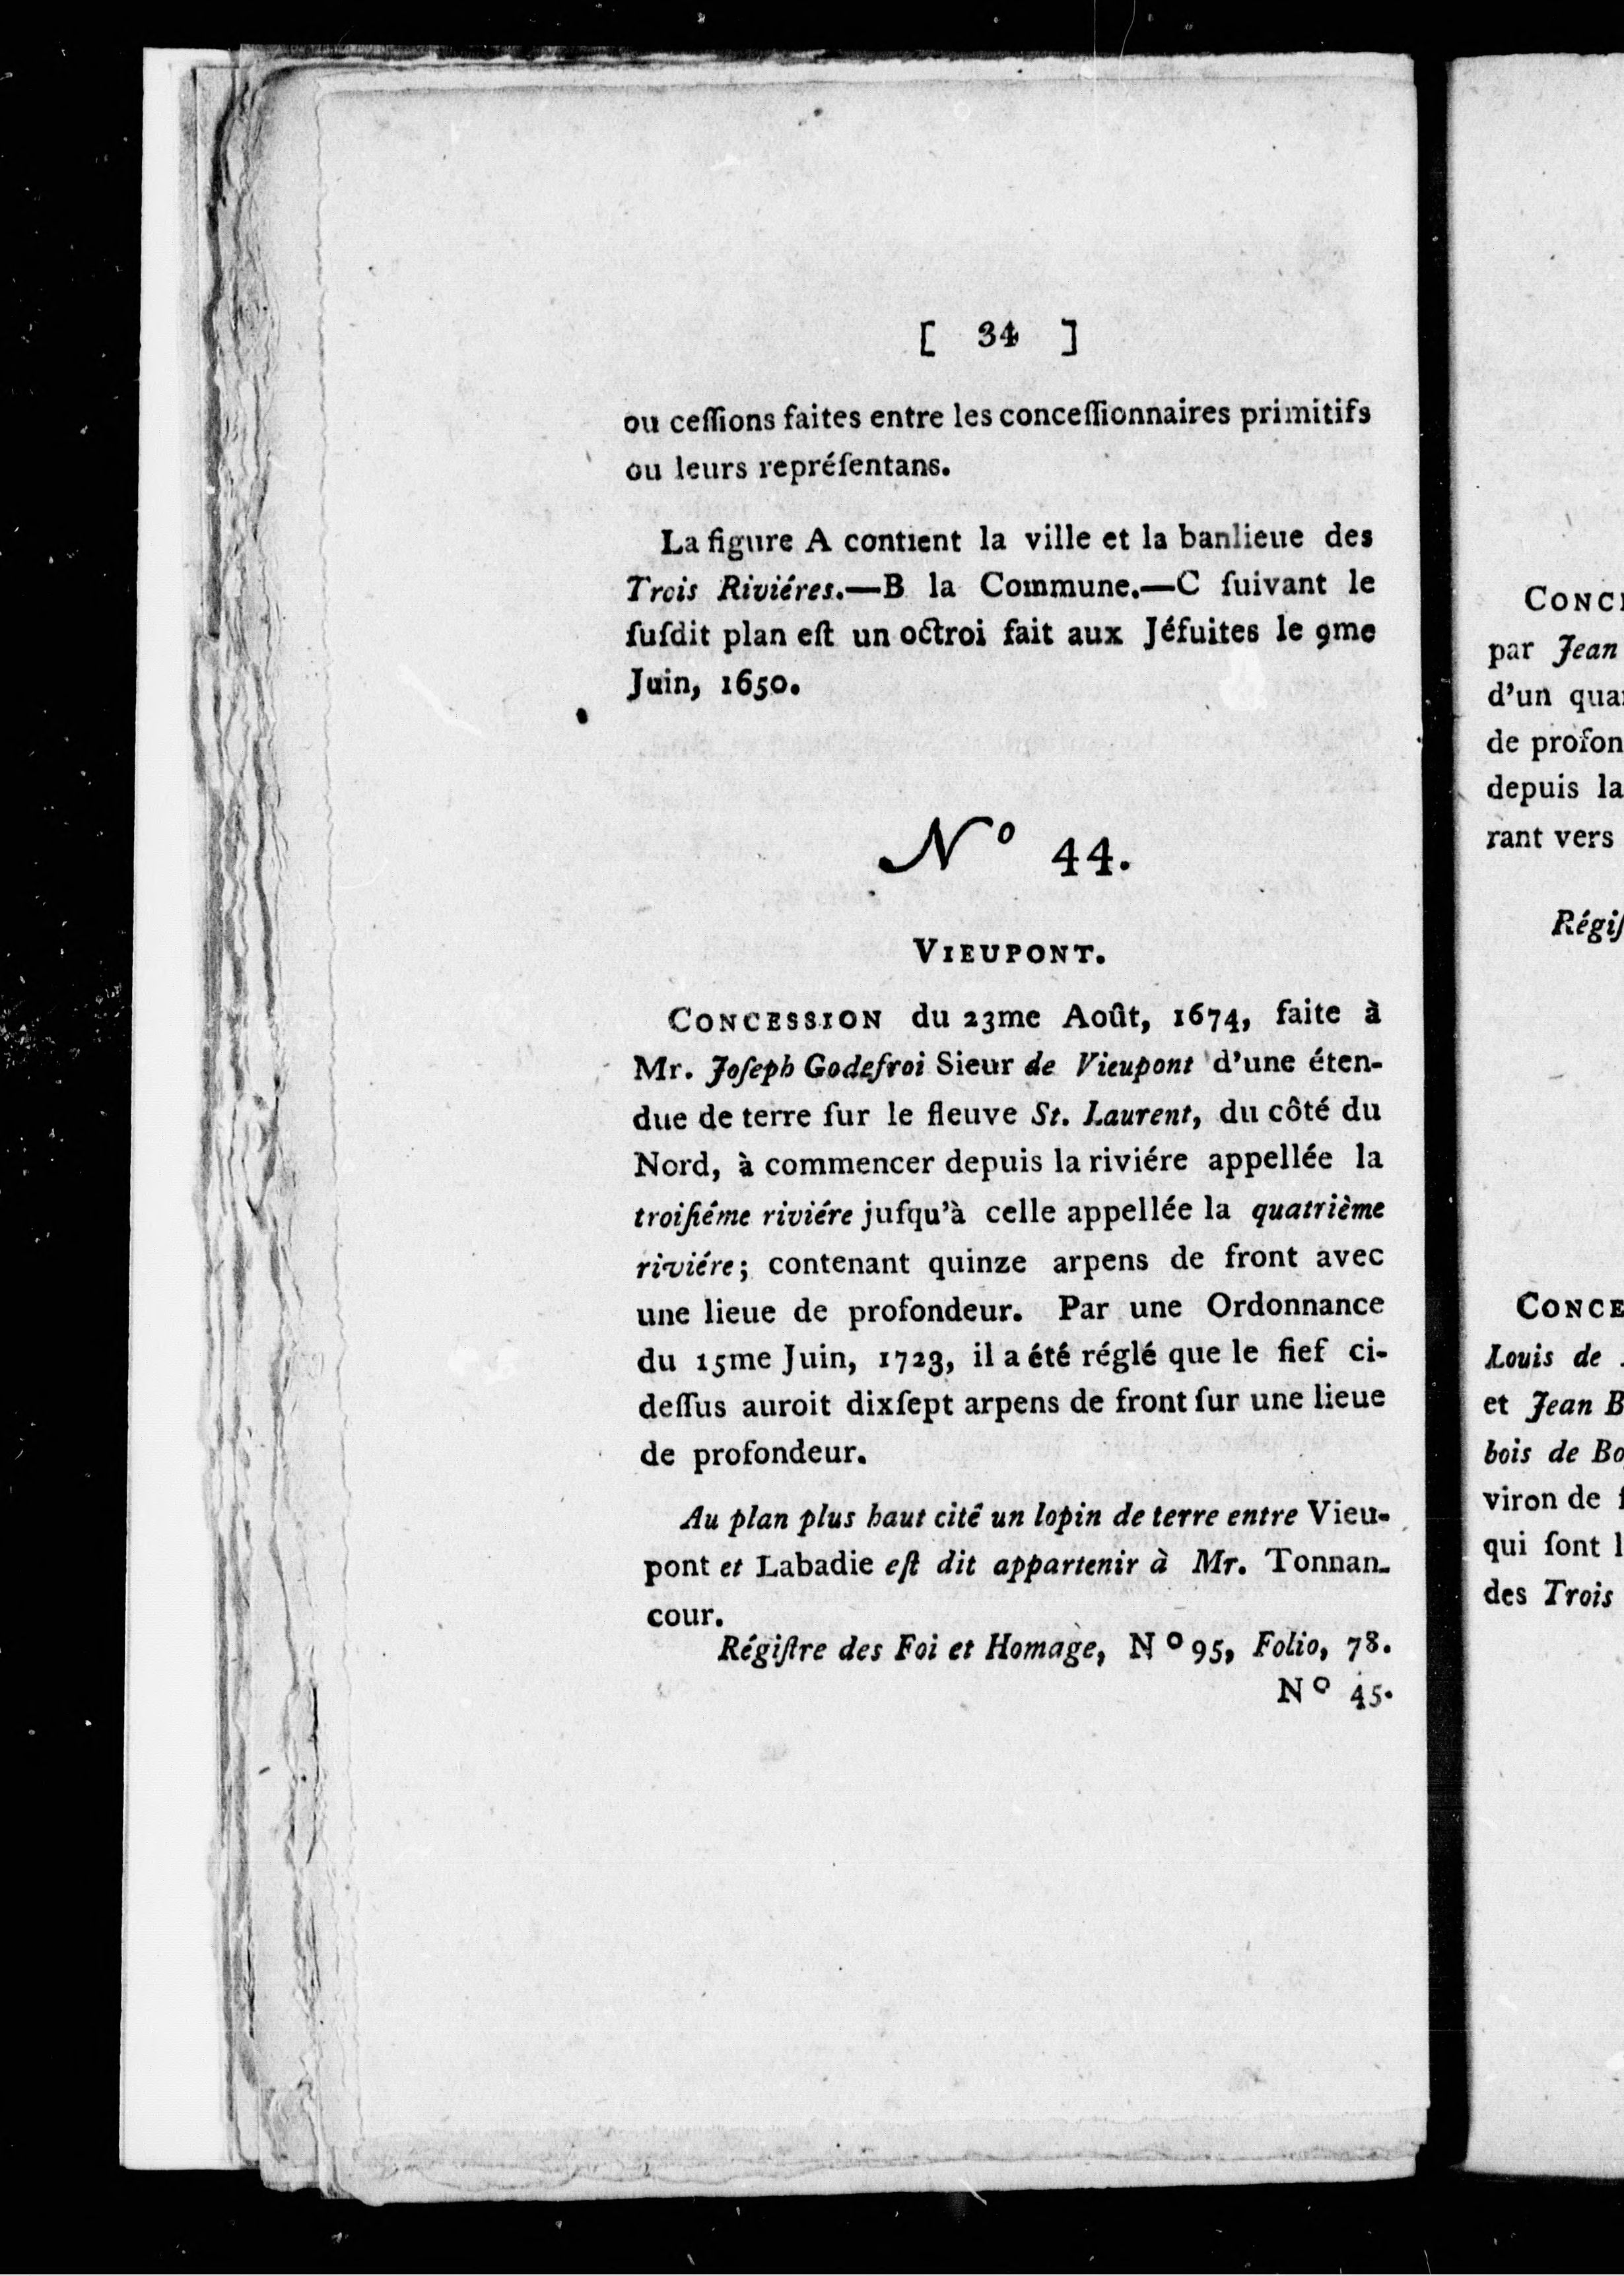 [ 34 ]
ou ceſſions faites entre les conceſſionnaires primitifs
ou leurs repréſentans.
La figure A contient la ville et la banlieue des
Trois Riviéres.—B la Commune.—C ſuivant le
ſuſdit plan eſt un octroi fait aux Jéſuites le 9me
Juin, 1650.
No 44.
VIEUPONT.
CONCESSION du 23me Août, 1674, faite à
Mr. Joſeph Godefroi Sieur de Vieupont d'une éten-
due de terre ſur le fleuve St. Laurent, du côté du
Nord, à commencer depuis la riviére appellée la
troiſiéme riviére juſqu'à celle appellée la quatrième
riviére; contenant quinze arpens de front avec
une lieue de profondeur. Par une Ordonnance
du 15me Juin, 1723, il a été réglé que le fief ci-
deſſus auroit dixſept arpens de front ſur une lieue
de profondeur.
Au plan plus haut cité un lopin de terre entre Vieu-
pont et Labadie eſt dit appartenir à Mr. Tonnan-
cour.
Régiſtre des Foi et Homage, No 95, Folio, 78.
No 45.
CONC
par Jean
d'un
de
depuis la
rant vers
CONCE
Louis de
et Jean B
bois de Bo
viron de
qui ſont
des Trois